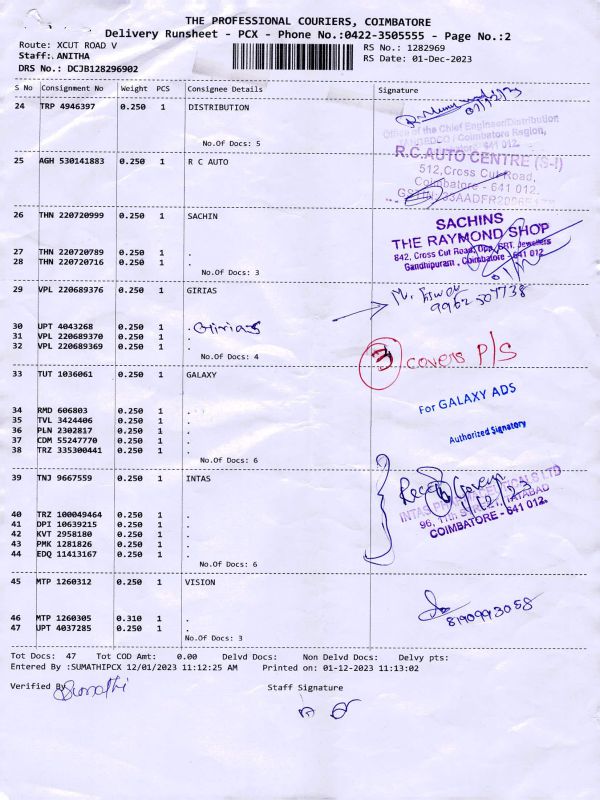 THE PROFESSIONAL COURIERS, COIMBATORE
Delivery Runsheet - PCX - Phone No.:0422-3505555 - Page No.:2
Route: XCUT ROAD V
RS No.: 1282969
Staff: ANITHA
RS Date: 01-Dec-2023
DRS No.: DCJB128296902
S No Consignment No Weight PCS Consignee Details Signature
24 TRP 4946397 0.250 1 DISTRIBUTION
Office of the Chief Engineer/Distribution
Coimbatore Region,
No.Of Docs: 5
25 AGH 530141883 0.250 1 R C AUTO
R.C.AUTO CENTRE (S-I)
512,Cross Cut Road,
Coimbatore - 641 012.
26 THN 220720999 0.250 1 SACHIN
SACHINS
THE RAYMOND SHOP
842, Cross Cut Road, Opp. SBT, Jewellers
Gandhipuram, Coimbatore - 641 012
27 THN 220720789 0.250 1 .
28 THN 220720716 0.250 1 .
No.Of Docs: 3
29 VPL 220689376 0.250 1 GIRIAS
9962507738
30 UPT 4043268 0.250 1 . Girias
31 VPL 220689370 0.250 1 .
32 VPL 220689369 0.250 1 .
No.Of Docs: 4
3 covers P/S
33 TUT 1036061 0.250 1 GALAXY
For GALAXY ADS
Authorized Signatory
34 RMD 606803 0.250 1 .
35 TVL 3424406 0.250 1 .
36 PLN 2302817 0.250 1 .
37 CDM 55247770 0.250 1 .
38 TRZ 335300441 0.250 1 .
No.Of Docs: 6
39 TNJ 9667559 0.250 1 INTAS
COIMBATORE - 641 012.
40 TRZ 100049464 0.250 1 .
41 DPI 10639215 0.250 1 .
42 KVT 2958180 0.250 1 .
43 PMK 1281826 0.250 1 .
44 EDQ 11413167 0.250 1 .
No.Of Docs: 6
45 MTP 1260312 0.250 1 VISION
8190993058
46 MTP 1260305 0.310 1 .
47 UPT 4037285 0.250 1 .
No.Of Docs: 3
Tot Docs: 47 Tot COD Amt: 0.00 Delvd Docs: Non Delvd Docs: Delvy pts:
Entered By :SUMATHIPCX 12/01/2023 11:12:25 AM Printed on: 01-12-2023 11:13:02
Verified By Sumathi
Staff Signature